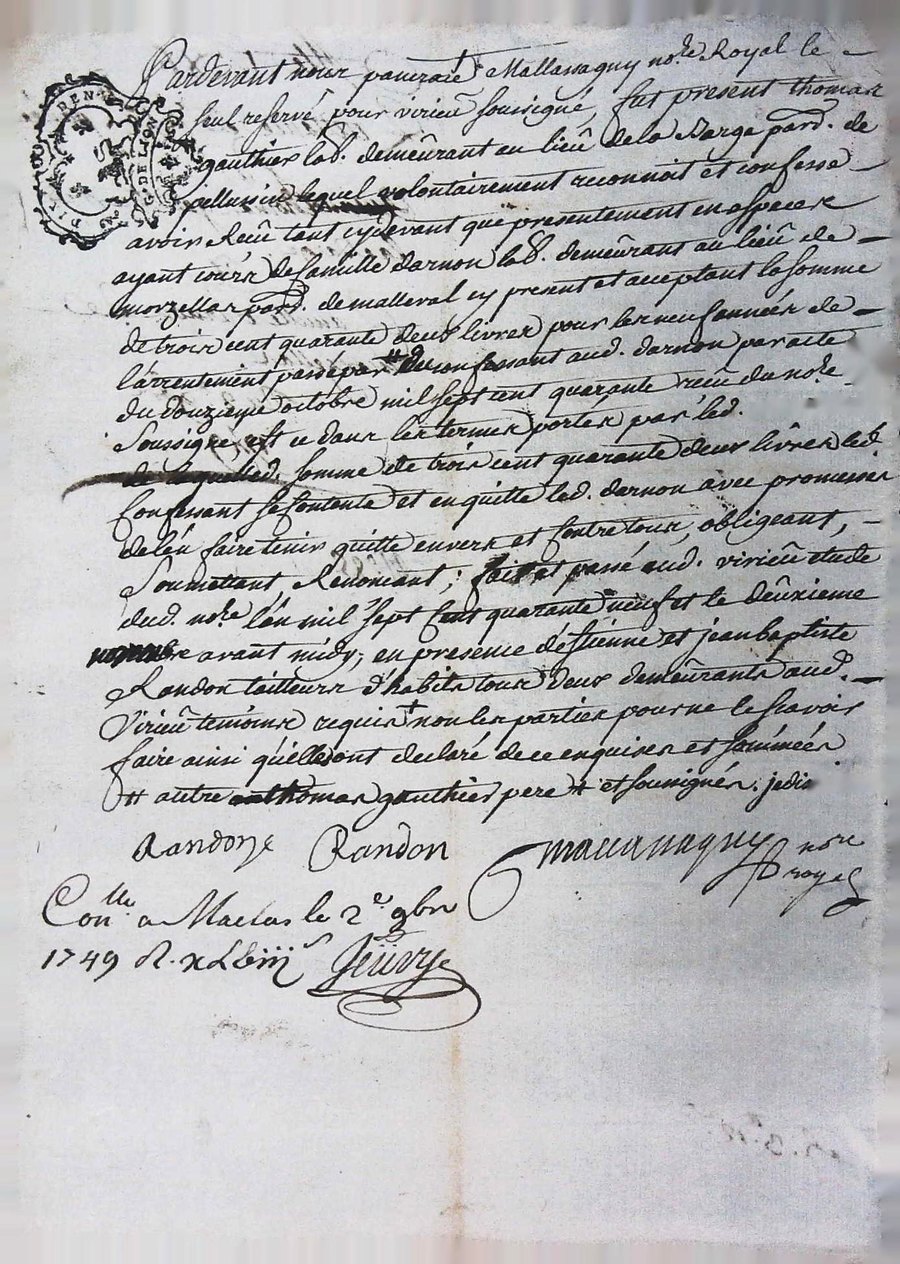 Pardevant nous pancrace Mallanaguy no.re Royal le
seul reservé pour virieu soussigné, fut present thomas
gauthier lab. demeurant au lieu de la Barge parr. de
pellussin lequel volontairement reconnoit et confesse
avoir Receu tant cydevant que presentement en especes
ayant cours de Camille darnon lab. demeurant au lieu de
morzellas parr. de malleval cy present et acceptant la somme
de trois cent quarante deux livres pour les neuf années de
l'arrentement passé par # confessant aud. darnon par acte
du douzieme octobre mil sept cent quarante receu du no.re
Soussigné et ce dans les termes portes par led.
de laquelled. somme de trois cent quarante deux livres led.
Confessant se Contente et en quitte led. darnon avec promesses
de l'en faire tenir quitte envers et Contre tous, obligeant,
Soumettant, Renoncant, fait et passé aud. virieu etude
dud. no.re l'an mil sept Cent quarante neuf et le deuxieme
novembre avant midy, en presence d'estienne et jean baptiste
Randon tailleurs d'habits tous deux demeurants aud.
Virieu temoins requis + non les parties pour ne le scavoir
faire ainsi qu'elles ont declaré de ce enquises et sommées
# autre thomas gauthier pere + et soussignés. je dis
Randon Randon Mallanaguy no.re
royal
Con.lle a Maclas le 2.e 9bre
1749 R.
DIX DEN
G. DE LION